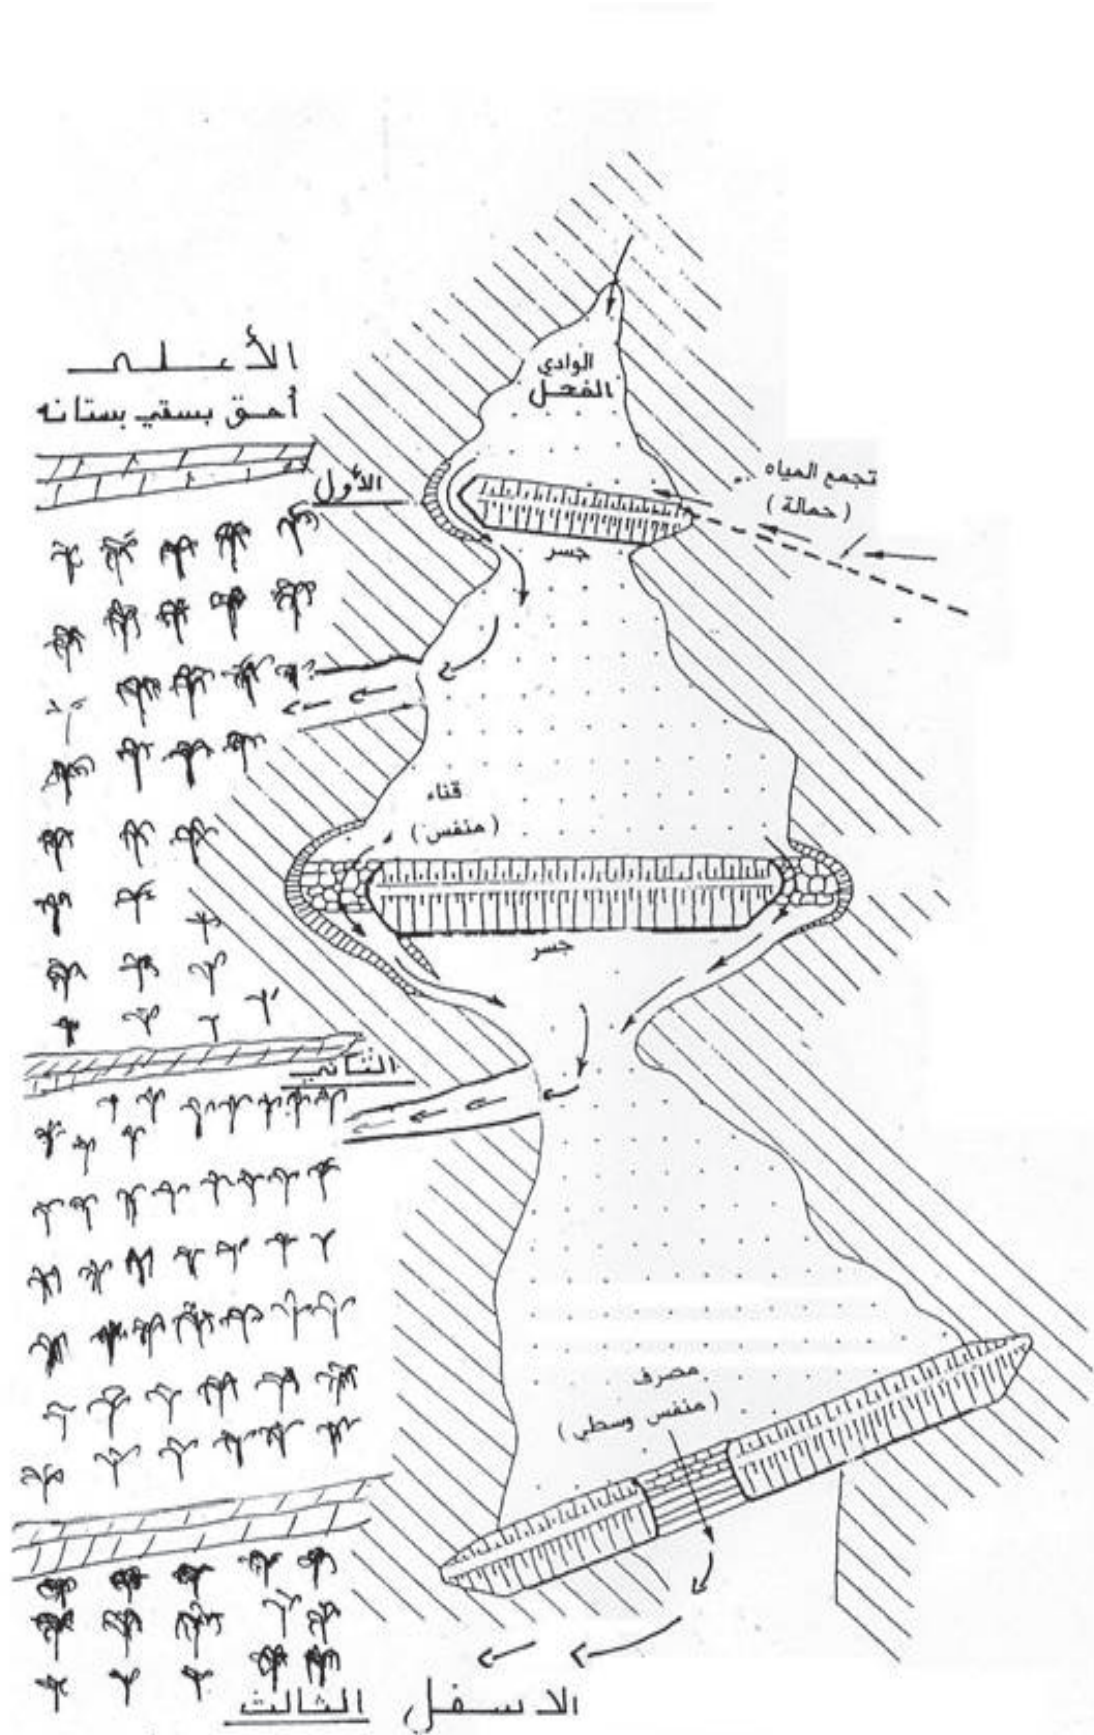 الأعلى
أحق بسقي بستانه
الوادي
الفحل
تجمع المياه
( حمالة )
الأول
جسر
قناه
( منفس )
جسر
الثاني
مصرف
( منفس وسطي )
الاسفل الثالث